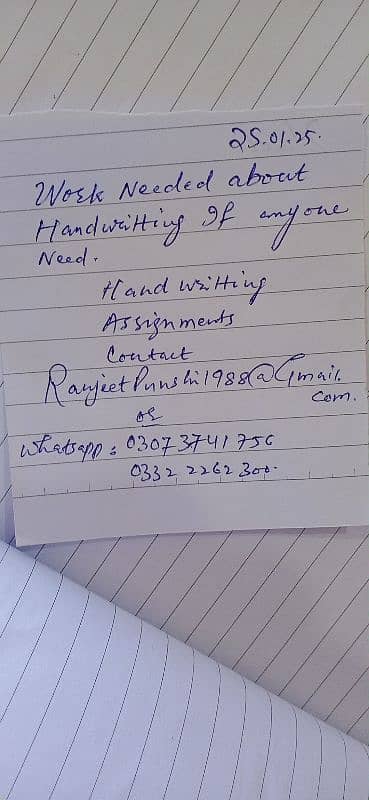 25.01.25.
Work Needed about
Handwritting If anyone
Need.
Hand writting
Assignments
Contact
RanjeetPunshi1988@Gmail.
Com.
or
whatsapp: 0307 3741 756
0332 2262 300.